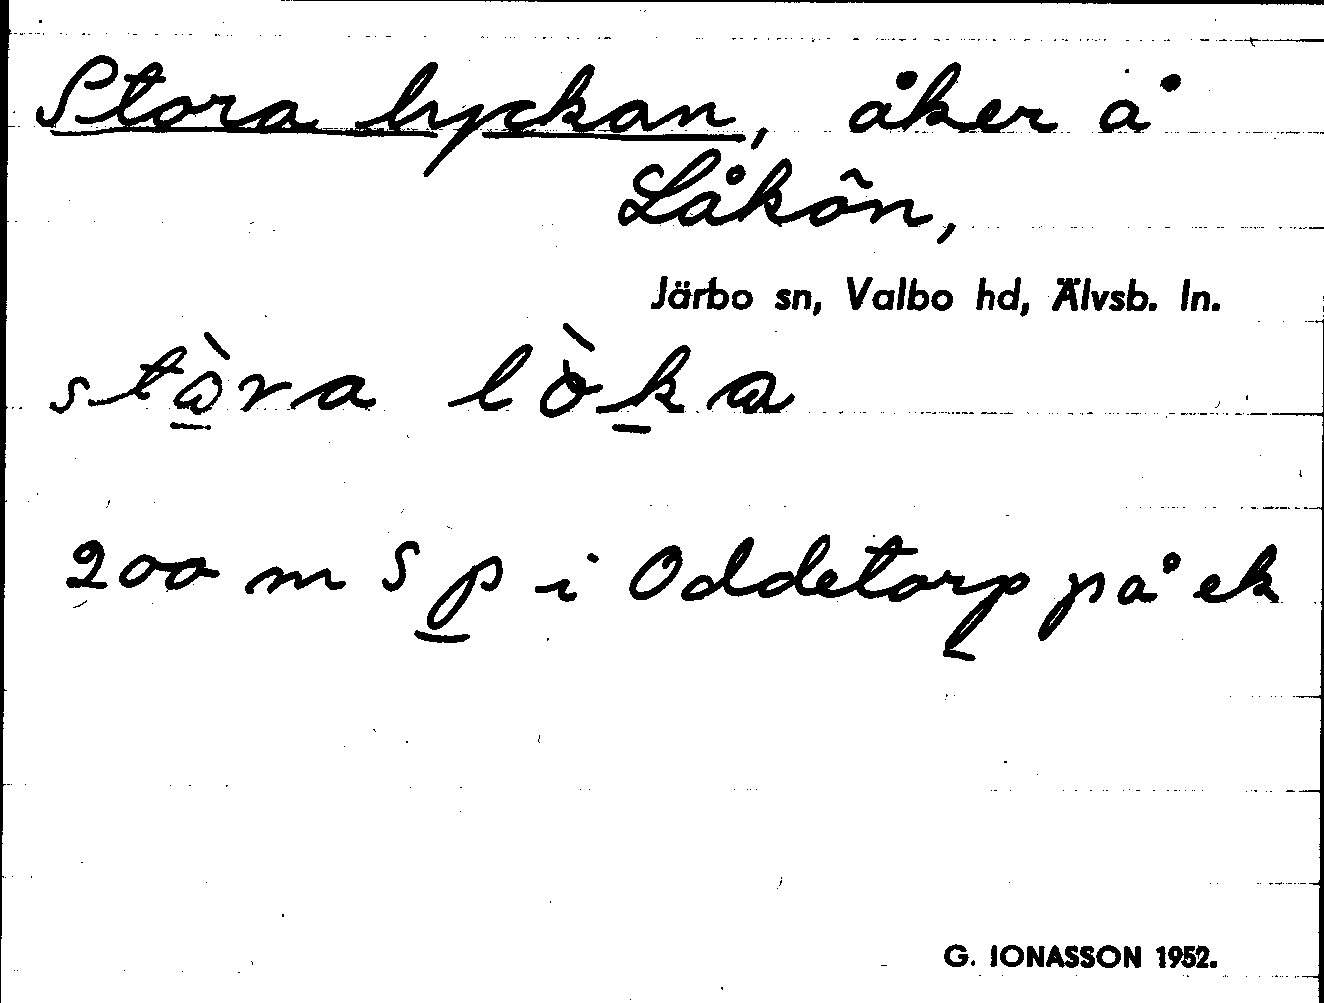 Stora lyckan, åker å
Låkön,
Järbo sn, Valbo hd, Älvsb. ln.
ståra lö̀ka
200 m S p i Oddetorp på ek
G. IONASSON 1952.